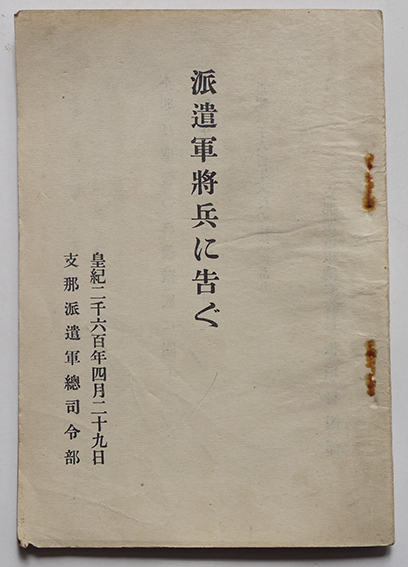 派遣軍將兵に告ぐ
皇紀二千六百年四月二十九日
支那派遣軍總司令部